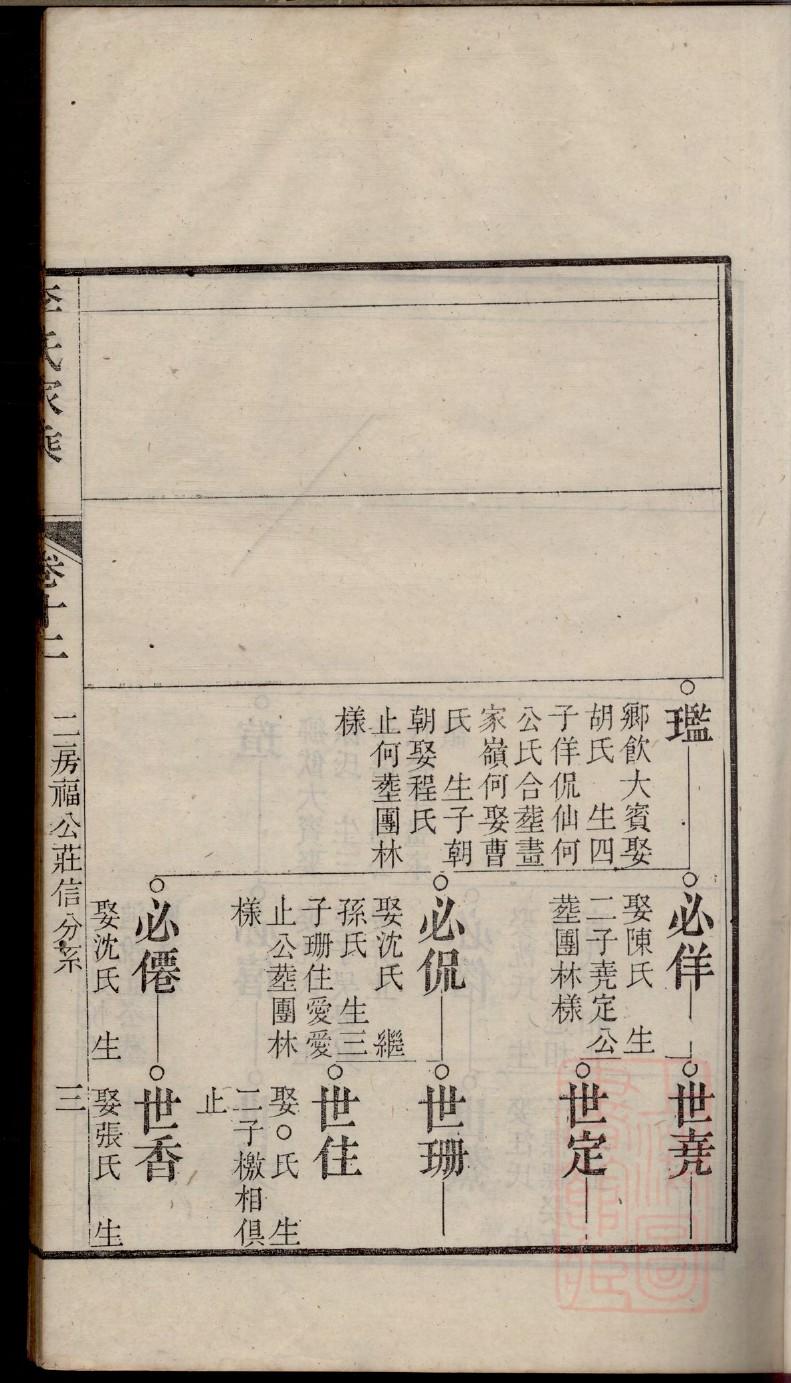 瓓
鄉飲大賓娶
胡氏 生四
子佯侃仙何
公氏合塟畫
家嶺何娶曹
氏 生子朝
朝娶程氏
止何塟團林
樣
必佯
娶陳氏 生
二子堯定公
塟團林樣
必侃
娶沈氏 繼
孫氏 生三
子珊住愛愛
止公塟團林
樣
必僊
娶沈氏 生
世堯
世定
世珊
世住
娶○氏 生
二子檄相俱
止
世香
娶張氏 生
李氏家乘
卷十二
二房福公莊信分系
三